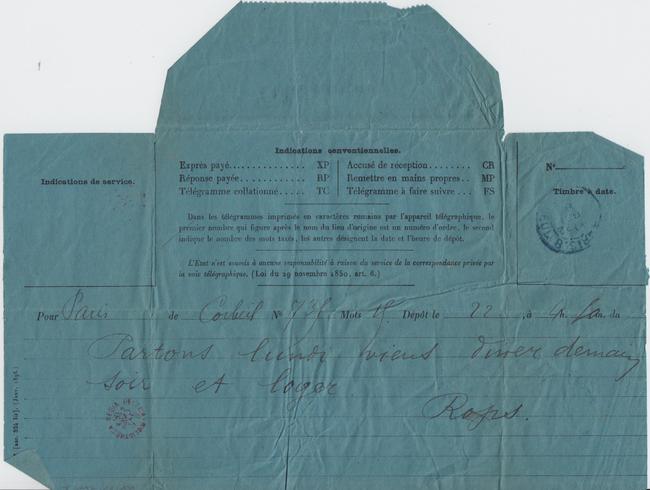 Indications conventionnelles.
Exprès payé.............. XP
Réponse payée........... RP
Télégramme collationné..... TC
Accusé de réception........ CR
Remettre en mains propres.. MP
Télégramme à faire suivre ... FS
Indications de service.
N°
Timbre à date.
Dans les télégrammes imprimés en caractères romains par l'appareil télégraphique, le
premier nombre qui figure après le nom du lieu d'origine est un numéro d'ordre, le second
indique le nombre des mots taxés, les autres désignent la date et l'heure de dépôt.
L'Etat n'est soumis à aucune responsabilité à raison du service de la correspondance privée par
la voie télégraphique. (Loi du 29 novembre 1850, art. 6.)
Pour Paris de Corbeil N° Mots Dépôt le 22, à 4h. m. du
Partons lundi viens diner demain
soir et loger
Rops.